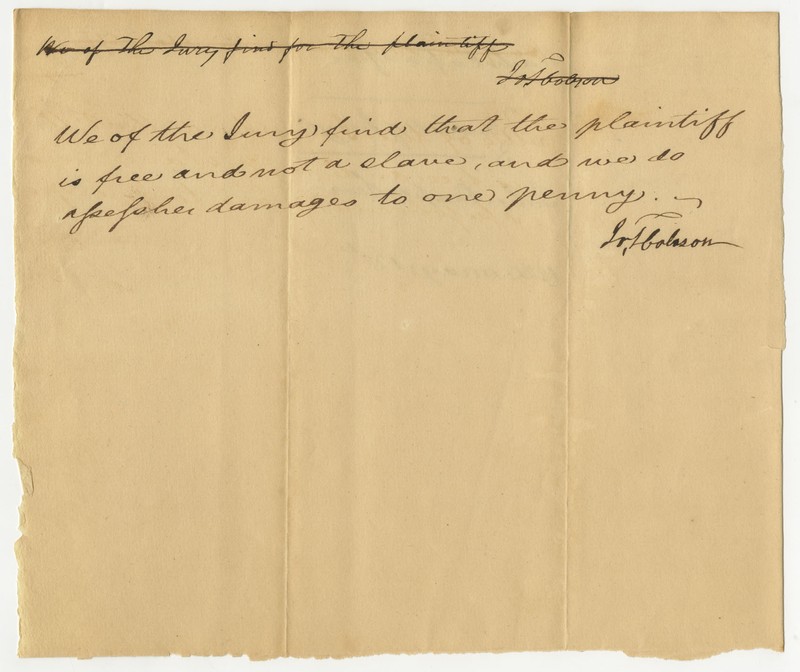 We of The Jury find for The plaintiff
Jos Hobson
We of the Jury find that the plaintiff
is free and not a slave, and we do
assess her damages to one penny.
Jos Hobson